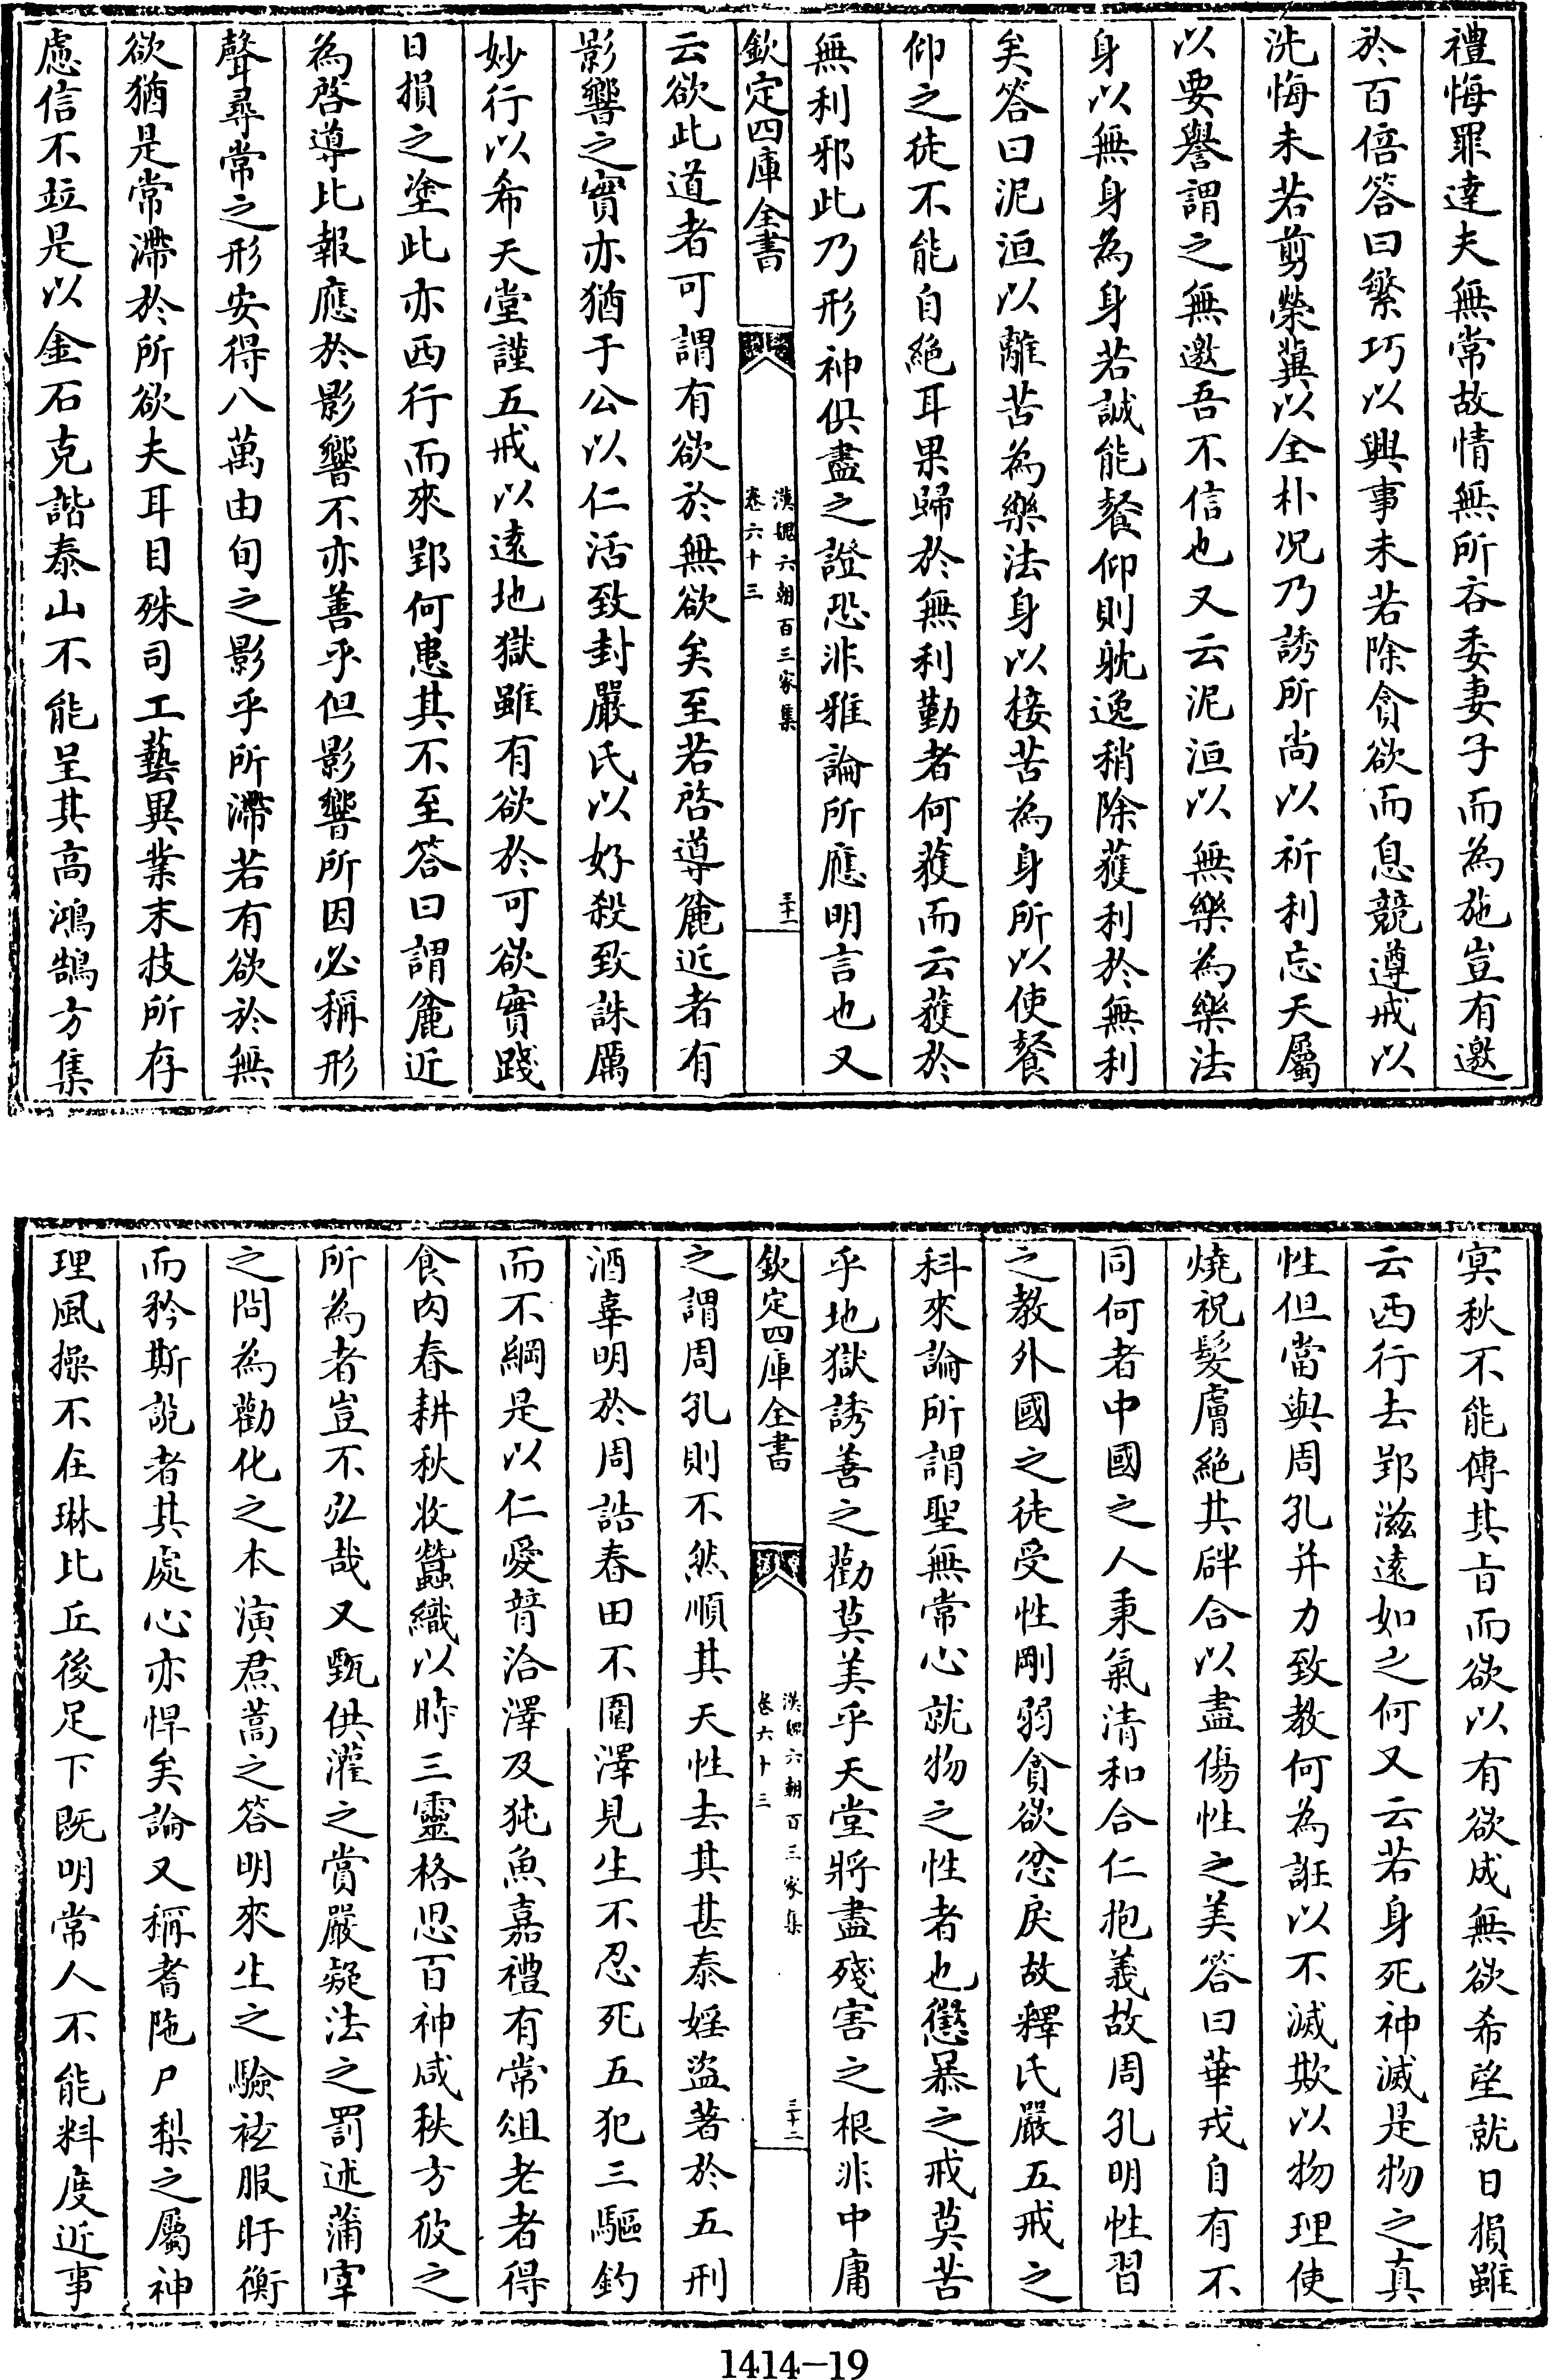 禮悔罪達夫無常故情無所吝委妻子而為施豈有邀
於百倍答曰繁巧以興事未若除貪欲而息競遵戒以
洗悔未若剪榮冀以全朴况乃誘所尚以祈利忘天屬
以要譽謂之無邀吾不信也又云泥洹以無樂為樂法
身以無身為身若誠能餐仰則躭逸稍除獲利於無利
矣答曰泥洹以離苦為樂法身以接苦為身所以使餐
仰之徒不能自絶耳果歸於無利勤者何獲而云獲於
無利邪此乃形神俱盡之證恐非雅論所應明言也又
欽定四庫全書
漢魏六朝百三家集
卷六十三
三十一
云欲此道者可謂有欲於無欲矣至若啓導麄近者有
影響之實亦猶于公以仁活致封嚴氏以好殺致誅厲
妙行以希天堂謹五戒以遠地獄雖有欲於可欲實踐
日損之塗此亦西行而來郢何患其不至答曰謂麄近
為啓導比報應於影響不亦善乎但影響所因必稱形
聲尋常之形安得八萬由旬之影乎所滯若有欲於無
欲猶是常滯於所欲夫耳目殊司工藝異業末技所存
慮信不竝是以金石克諧泰山不能呈其高鴻鵠方集
冥秋不能傳其旨而欲以有欲成無欲希望就日損雖
云西行去郢滋遠如之何又云若身死神滅是物之真
性但當與周孔并力致教何為誑以不滅欺以物理使
燒祝髮膚絶其胖合以盡傷性之美答曰華戎自有不
同何者中國之人秉氣清和合仁抱義故周孔明性習
之教外國之徒受性剛弱貪欲忿戾故釋氏嚴五戒之
科來論所謂聖無常心就物之性者也懲暴之戒莫苦
乎地獄誘善之勸莫美乎天堂將盡殘害之根非中庸
欽定四庫全書
漢魏六朝百三家集
卷六十三
三十二
之謂周孔則不然順其天性去其甚泰婬盜著於五刑
酒辜明於周誥春田不圍澤見生不忍死五犯三驅釣
而不綱是以仁愛普洽澤及㹠魚嘉禮有常俎老者得
食肉春耕秋收蠶織以時三靈格思百神咸秩方彼之
所為者豈不弘哉又甄供灌之賞嚴疑法之罰述蒲宰
之問為勸化之本演焄蒿之答明來生之驗袪服盱衡
而矜斯說者其處心亦悍矣論又稱耆陁尸梨之屬神
理風操不在琳比丘後足下既明常人不能料度近事
1414—19